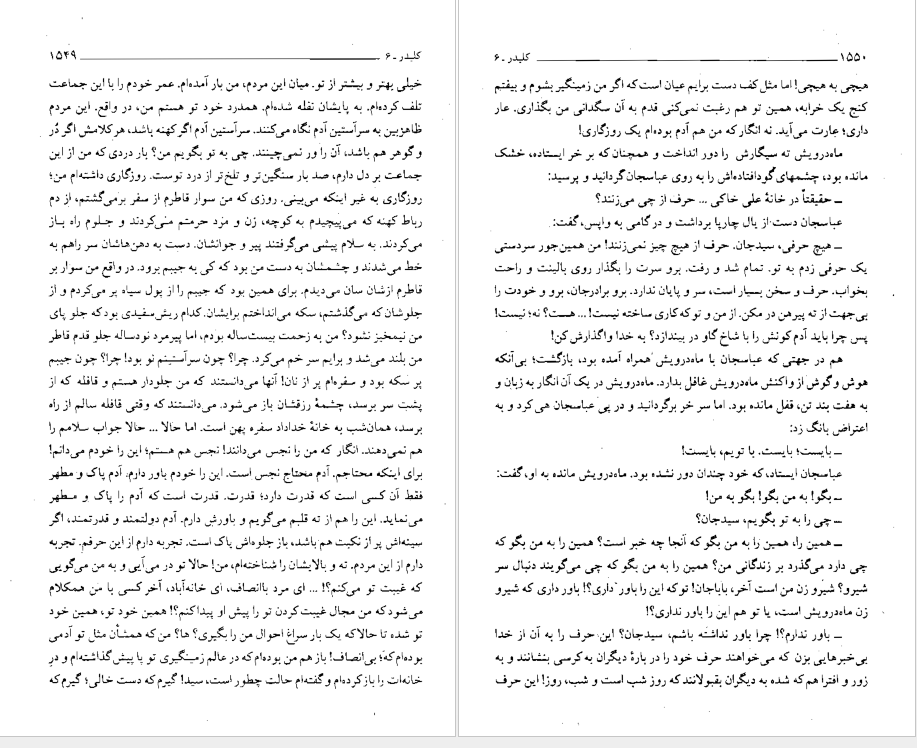 کلیدر ـ ۶ ۱۵۴۹
خیلی بهتر و بیشتر از تو. میان این مردم، من بار آمده‌ام. عمر خودم را با این جماعت
تلف کرده‌ام. به پایشان نفله شده‌ام. همدرد خود تو هستم من، در واقع. این مردم
ظاهربین به سرآستین آدم نگاه می‌کنند. سرآستین آدم اگر کهنه باشد، هر کلامش اگر دُر
و گوهر هم باشد، آن را ور نمی‌چینند. چی به تو بگویم من؟ بار دردی که من از این
جماعت بر دل دارم، صد بار سنگین‌تر و تلخ‌تر از درد توست. روزگاری داشته‌ام من؛
روزگاری به غیر اینکه می‌بینی. روزی که من سوار قاطرم از سفر برمی‌گشتم، از دم
رباط کهنه که می‌پیچیدم به کوچه، زن و مرد حرمتم می‌کردند و جلوم راه باز
می‌کردند. به سلام پیشی می‌گرفتند پیر و جوانشان. دست به دهن‌هاشان سر راهم به
خط می‌شدند و چشمشان به دست من بود که کی به جیبم برود. در واقع من سوار بر
قاطرم ازشان سان می‌دیدم. برای همین بود که جیبم را از پول سیاه پر می‌کردم و از
جلوشان که می‌گذشتم، سکه می‌انداختم برایشان. کدام ریش‌سفیدی بود که جلو پای
من نیمخیز نشود؟ من به زحمت بیست‌ساله بودم، اما پیرمرد نودساله جلو قدم قاطر
من بلند می‌شد و برایم سر خم می‌کرد. چرا؟ چون سرآستینم نو بود! چرا؟ چون جیبم
پر سکه بود و سفره‌ام پر از نان! آنها می‌دانستند که من جلودار هستم و قافله که از
پشت سر برسد، چشمهٔ رزقشان باز می‌شود. می‌دانستند که وقتی قافله سالم از راه
برسد، همان‌شب به خانهٔ خداداد سفره پهن است. اما حالا ... حالا جواب سلامم را
هم نمی‌دهند. انگار که من را نجس می‌دانند! نجس هم هستم؛ این را خودم می‌دانم!
برای اینکه محتاجم. آدم محتاج نجس است. این را خودم باور دارم. آدم پاک و مطهر
فقط آن کسی است که قدرت دارد؛ قدرت. قدرت است که آدم را پاک و مطهر
می‌نماید. این را هم از ته قلبم می‌گویم و باورش دارم. آدم دولتمند و قدرتمند، اگر
سینه‌اش پر از نکبت هم باشد، باز جلوه‌اش پاک است. تجربه دارم از این حرفم. تجربه
دارم از این مردم. ته و بالایشان را شناخته‌ام، من! حالا تو در می‌آیی و به من می‌گویی
که غیبت تو می‌کنم؟! ... ای مرد باانصاف، ای خانه‌آباد، آخر کسی با من همکلام
می‌شود که من مجال غیبت کردن تو را پیش او پیدا کنم؟! همین خود تو، همین خود
تو شده تا حالا که یک بار سراغ احوال من را بگیری؟ ها؟ من که همشأن مثل تو آدمی
بوده‌ام که؛ بی‌انصاف! باز هم من بوده‌ام که در عالم زمینگیری تو پا پیش گذاشته‌ام و درِ
خانه‌ات را باز کرده‌ام و گفته‌ام حالت چطور است، سید! گیرم که دست خالی؛ گیرم که
۱۵۵۰ کلیدر ـ ۶
هیچی به هیچی! اما مثل کف دست برایم عیان است که اگر من زمینگیر بشوم و بیفتم
کنج یک خرابه، همین تو هم رغبت نمی‌کنی قدم به آن سگدانی من بگذاری. عار
داری؛ عارت می‌آید. نه انگار که من هم آدم بوده‌ام یک روزگاری!
ماه‌درویش ته سیگارش را دور انداخت و همچنان که بر خر ایستاده، خشک
مانده بود، چشمهای گودافتاده‌اش را به روی عباسجان گردانید و پرسید:
ـ حقیقتاً در خانهٔ علی خاکی ... حرف از چی می‌زنند؟
عباسجان دست از یال چارپا برداشت و درگامی به واپس، گفت:
ـ هیچ حرفی، سیدجان. حرف از هیچ چیز نمی‌زنند! من همین‌جور سردستی
یک حرفی زدم به تو. تمام شد و رفت. برو سرت را بگذار روی بالینت و راحت
بخواب. حرف و سخن بسیار است، سر و پایان ندارد. برو برادرجان، برو و خودت را
بی‌جهت از ته پیرهن در مکن. از من و تو که کاری ساخته نیست! ... هست؟ نه؛ نیست!
پس چرا باید آدم کونش را با شاخ گاو در بیندازد؟ به خدا واگذارش کن!
هم در جهتی که عباسجان با ماه‌درویش همراه آمده بود، بازگشت؛ بی‌آنکه
هوش و گوش از واکنش ماه‌درویش غافل بدارد. ماه‌درویش در یک آن انگار به زبان و
به هفت بند تن، قفل مانده بود. اما سر خر برگردانید و در پی عباسجان هی کرد و به
اعتراض بانگ زد:
ـ بایست؛ بایست. با تویم، بایست!
عباسجان ایستاد، که خود چندان دور نشده بود. ماه‌درویش مانده به او، گفت:
ـ بگو! به من بگو! بگو به من!
ـ چی را به تو بگویم، سیدجان؟
ـ همین را، همین را به من بگو که آنجا چه خبر است؟ همین را به من بگو که
چی دارد می‌گذرد بر زندگانی من؟ همین را به من بگو که چی می‌گویند دنبال سر
شیرو؟ شیرو زن من است آخر، باباجان! تو که این را باور داری؟! باور داری که شیرو
زن ماه‌درویش است، یا تو هم این را باور نداری؟!
ـ باور ندارم؟! چرا باور نداشته باشم، سیدجان؟ این حرف را به آن از خدا
بی‌خبرهایی بزن که می‌خواهند حرف خود را در بارهٔ دیگران به کرسی بنشانند و به
زور و افترا هم که شده به دیگران بقبولانند که روز شب است و شب، روز! این حرف